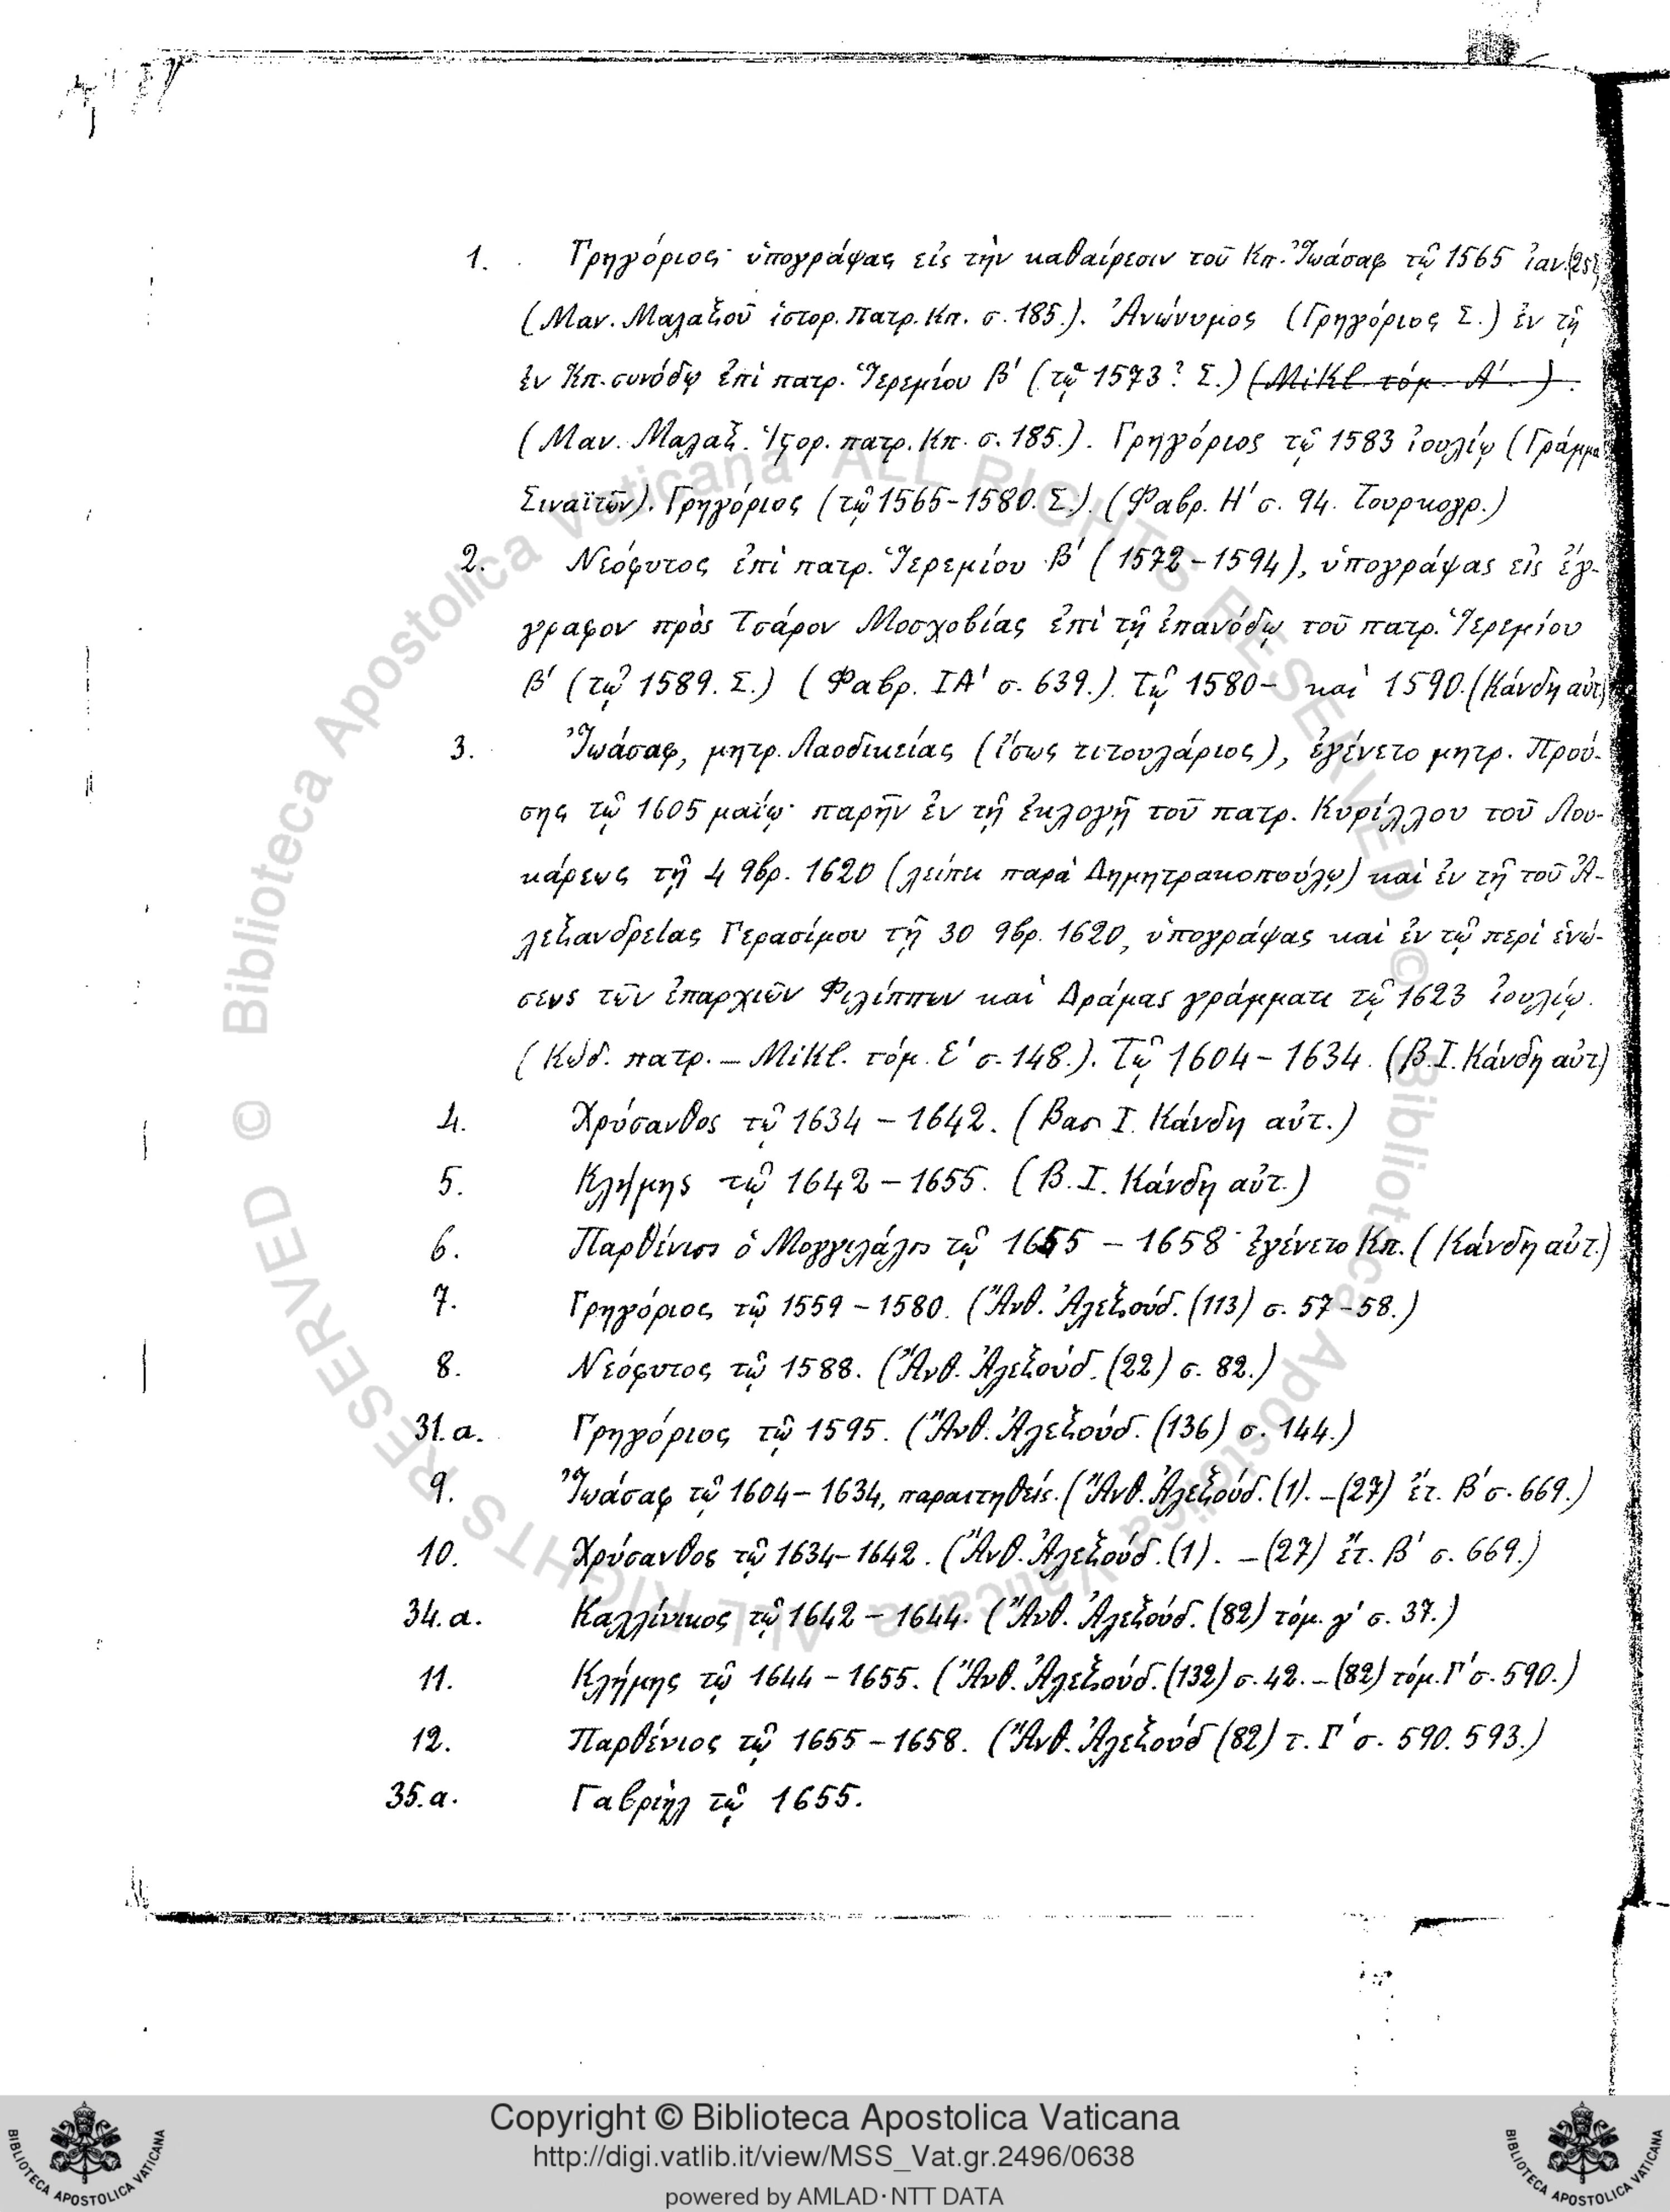 1. Γρηγόριος· ὑπογράψας εἰς τὴν καθαίρεσιν τοῦ Κπ. Ἰωάσαφ τῷ 1565 ἰαν.
(Μαν. Μαλαξοῦ ἱστορ. Πατρ. Κπ. σ. 185.). Ἀνώνυμος (Γρηγόριος Σ.) ἐν τῇ
ἐν Κπ. συνόδῳ ἐπὶ πατρ. Ἱερεμίου Β' (τῷ 1573? Σ.) (Mikl. τόμ. Α'. ).
(Μαν. Μαλαξ. Ἱστορ. πατρ. Κπ. σ. 185.). Γρηγόριος τῷ 1583 ἰουλίῳ (Γράμμα
Σιναϊτῶν). Γρηγόριος (τῷ 1565-1580. Σ.). (Φαβρ. Η' σ. 94. Τουρκογρ.)
2. Νεόφυτος ἐπὶ πατρ. Ἱερεμίου Β' (1572-1594), ὑπογράψας εἰς ἔγ-
γραφον πρὸς Τσάρον Μοσχοβίας ἐπὶ τῇ ἐπανόδῳ τοῦ πατρ. Ἱερεμίου
Β' (τῷ 1589. Σ.) (Φαβρ. ΙΑ' σ. 639.). Τῷ 1580- καὶ 1590. (Κάνδη αὐτ)
3. Ἰωάσαφ, μητρ. Λαοδικείας (ἴσως τιτουλάριος), ἐγένετο μητρ. Πρού-
σης τῷ 1605 μαΐῳ· παρῆν ἐν τῇ ἐκλογῇ τοῦ πατρ. Κυρίλλου τοῦ Λου-
κάρεως τῇ 4 9βρ. 1620 (λείπει παρὰ Δημητρακοπούλῳ) καὶ ἐν τῇ τοῦ Ἀ-
λεξανδρείας Γερασίμου τῇ 30 9βρ. 1620, ὑπογράψας καὶ ἐν τῷ περὶ ἑνώ-
σεως τῶν ἐπαρχιῶν Φιλίππων καὶ Δράμας γράμματι τῷ 1623 ἰουλίῳ.
(Κώδ. πατρ. – Mikl. τόμ. Ε' σ. 148.). Τῷ 1604-1634. (Β. Ι. Κάνδη αὐτ)
4. Χρύσανθος τῷ 1634-1642. (Βασ Ι. Κάνδη αὐτ.)
5. Κλήμης τῷ 1642-1655. (Β. Ι. Κάνδη αὐτ.)
6. Παρθένιος ὁ Μογγιλάλος τῷ 1655-1658· ἐγένετο Κπ. (Κάνδη αὐτ.)
7. Γρηγόριος τῷ 1559-1580. (Ἄνθ. Ἀλεξούδ. (113) σ. 57-58.)
8. Νεόφυτος τῷ 1588. (Ἄνθ. Ἀλεξούδ. (22) σ. 82.)
31.α. Γρηγόριος τῷ 1595. (Ἄνθ. Ἀλεξούδ. (136) σ. 144.)
9. Ἰωάσαφ τῷ 1604-1634, παραιτηθείς. (Ἄνθ. Ἀλεξούδ. (1). – (27) ἔτ. Β' σ. 669.)
10. Χρύσανθος τῷ 1634-1642. (Ἄνθ. Ἀλεξούδ. (1). – (27) ἔτ. Β' σ. 669.)
34.α. Καλλίνικος τῷ 1642-1644. (Ἄνθ. Ἀλεξούδ. (82) τόμ. γ' σ. 37.)
11. Κλήμης τῷ 1644-1655. (Ἄνθ. Ἀλεξούδ. (132) σ. 42. – (82) τόμ. Γ' σ. 590.)
12. Παρθένιος τῷ 1655-1658. (Ἄνθ. Ἀλεξούδ (82) τ. Γ' σ. 590. 593.)
35.α. Γαβριὴλ τῷ 1655.
© Biblioteca Apostolica Vaticana ALL RIGHTS RESERVED © Biblioteca Apostolica Vaticana ALL RIGHTS RESERVED
Copyright © Biblioteca Apostolica Vaticana
http://digi.vatlib.it/view/MSS_Vat.gr.2496/0638
powered by AMLAD·NTT DATA
BIBLIOTECA APOSTOLICA VATICANA
BIBLIOTECA APOSTOLICA VATICANA